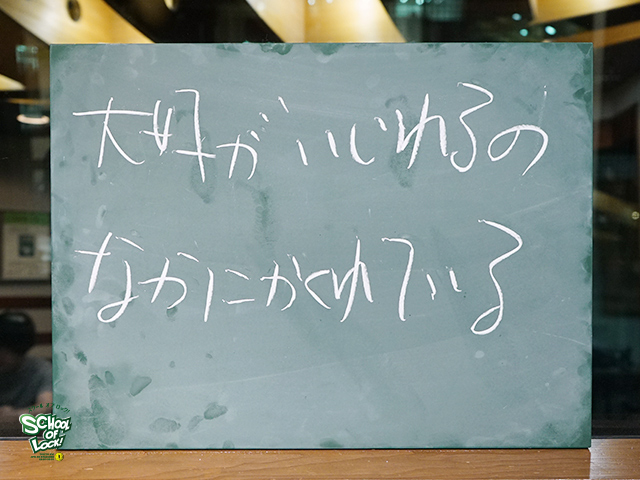 大好がいじれるの
なかにかくれている
SCHOOL
OF
LOCK!